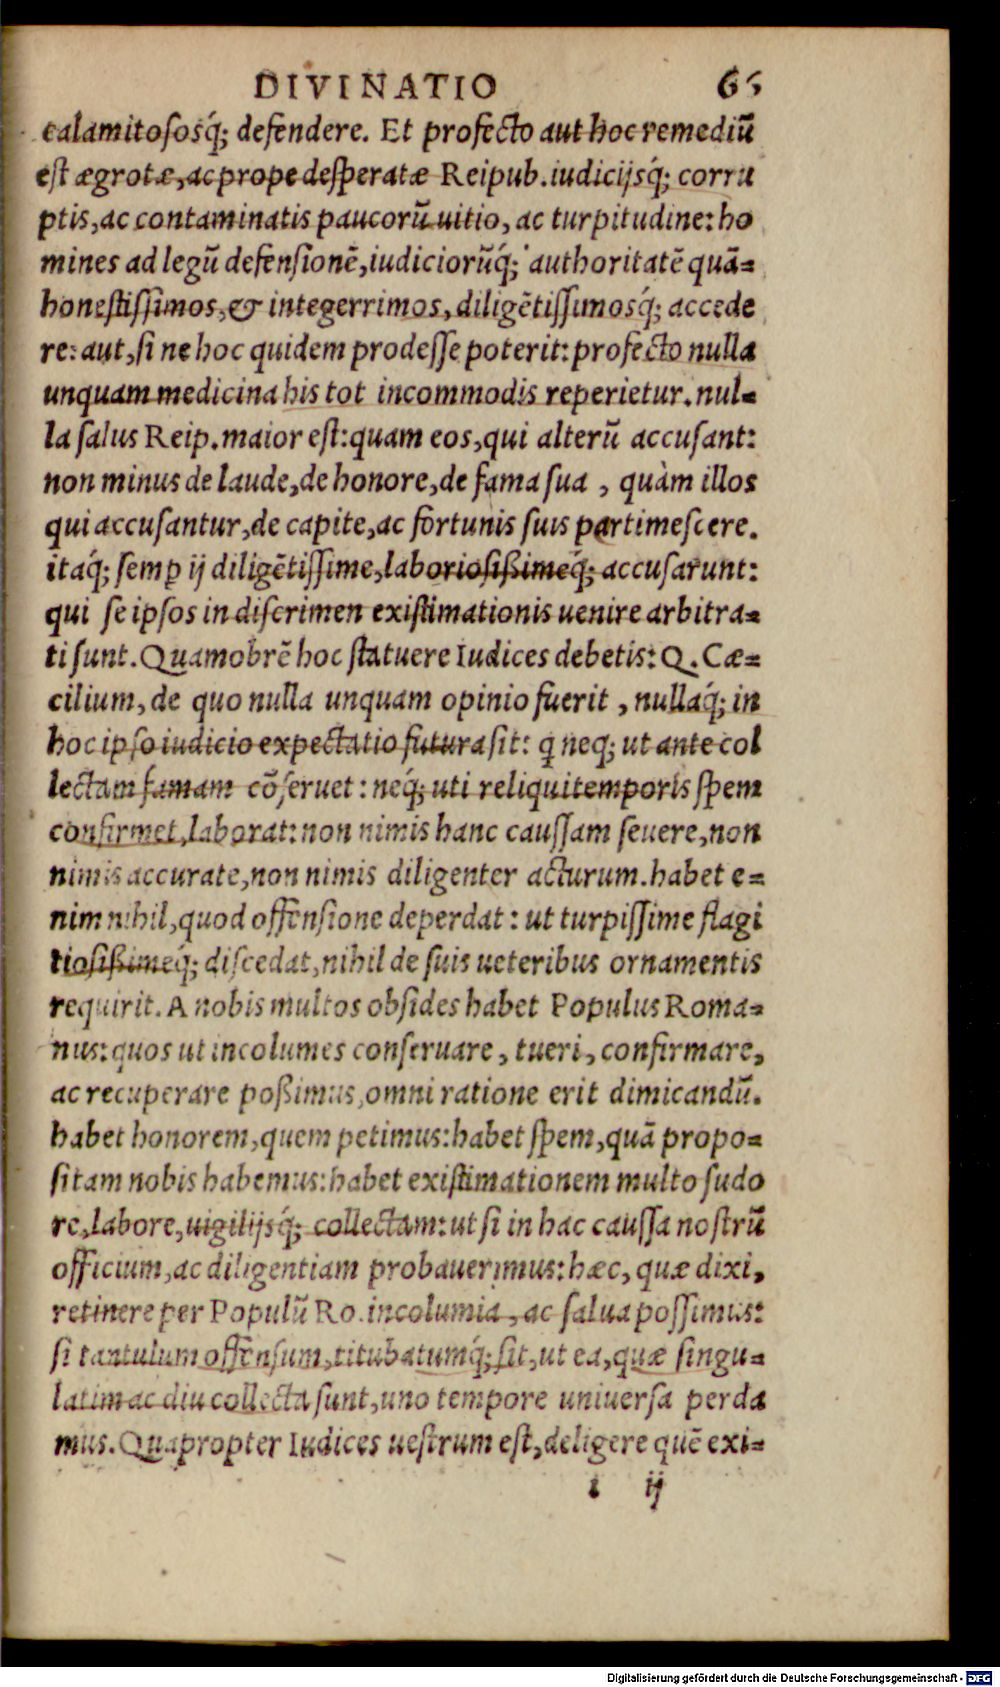 DIVINATIO 65
calamitososq́; defendere. Et profecto aut hoc remediũ
est ægrotæ, ac prope desperatæ Reipub. iudicijsq́; corru
ptis, ac contaminatis paucorũ uitio, ac turpitudine: ho
mines ad legũ defensionẽ, iudiciorũq́; authoritatẽ quã=
honestissimos, & integerrimos, diligẽtissimosq́; accede
re: aut, si ne hoc quidem prodesse poterit: profecto nulla
unquam medicina his tot incommodis reperietur. nul=
la salus Reip. maior est: quam eos, qui alterũ accusant:
non minus de laude, de honore, de fama sua, quàm illos
qui accusantur, de capite, ac fortunis suis partimescere.
itaq́; semꝑ ij diligẽtissime, laboriosißimeq́; accusarunt:
qui se ipsos in discrimen existimationis uenire arbitra=
ti sunt. Quamobrẽ hoc statuere Iudices debetis: Q. Cæ=
cilium, de quo nulla unquam opinio fuerit, nullaq́; in
hoc ipso iudicio expectatio futura sit: q̃ neq; ut ante col
lectam famam cõseruet: neq́; uti reliqui temporis spem
confirmet, laborat: non nimis hanc caussam seuere, non
nimis accurate, non nimis diligenter acturum. habet e=
nim nihil, quod offensione deperdat: ut turpissime flagi
tiosißimeq́; discedat, nihil de suis ueteribus ornamentis
requirit. A nobis multos obsides habet Populus Roma=
nus: quos ut incolumes conseruare, tueri, confirmare,
ac recuperare poßimus, omni ratione erit dimicandũ.
habet honorem, quem petimus: habet spem, quã propo=
sitam nobis habemus: habet existimationem multo sudo
re, labore, uigilijsq́; collectam: ut si in hac caussa nostrũ
officium, ac diligentiam probauerimus: hæc, quæ dixi,
retinere per Populũ Ro. incolumia, ac salua possimus:
si tantulum offensum, titubatumq́; sit, ut ea, quæ singu=
latim ac diu collecta sunt, uno tempore uniuersa perda
mus. Quapropter Iudices uestrum est, deligere quẽ exi=
i ij
Digitalisierung gefördert durch die Deutsche Forschungsgemeinschaft - DFG